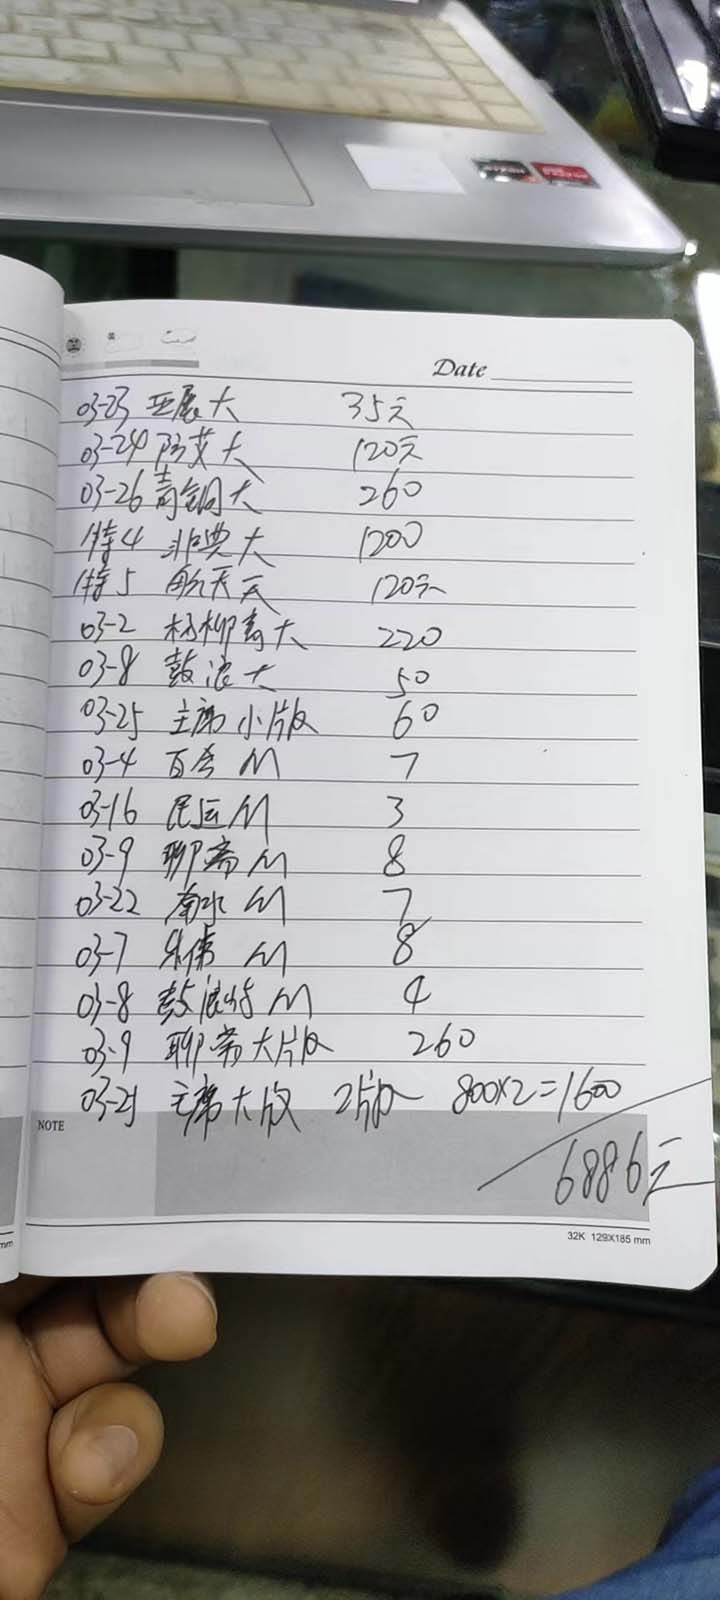 Date
03-23 亚展大 35元
03-24 防艾大 120元
03-26 青铜大 260
特4 非典大 1200
特5 航天大 120元
03-2 杨柳青大 220
03-8 鼓浪大 50
03-25 主席小版 60
03-4 百合M 7
03-16 民运M 3
03-9 聊斋M 8
03-22 南水M 7
03-7 乐佛M 8
03-8 鼓浪屿M 4
03-9 聊斋大版 260
03-25 主席大版 2版 800×2=1600
NOTE
6886元
32K 129X185 mm
mm